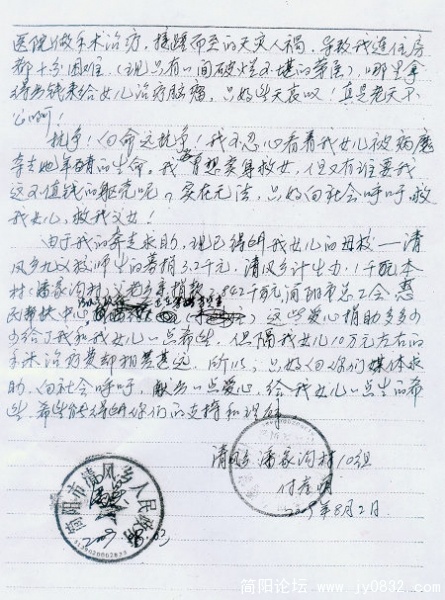 医院做手术治疗。接踵而至的天灾人祸，导致我连住房
都十分困难（现只有一间破烂不堪的草医），哪里拿
得出钱来给女儿治疗脑瘤，只好望天哀叹！真是老天不
公啊！
抗争！向命运抗争！我不忍心看着我女儿被病魔
夺去她年青的生命。我有想卖身救女，但又有谁要我
这不值钱的躯壳呢，实在无法，只好向社会呼吁，救
我女儿，救我父女！
由于我的奔走求助，现已得到我女儿的母校——清
风乡九义校师生的募捐3.2千元，清风乡计生办1千元，本
村（潘家沟村）父老乡亲捐款3.842千元，简阳市总工会
帮扶中心 这些爱心捐助多多少
少给了我和我女儿一点希望，但隔我女儿10万元左右的
手术治疗费却相差甚远，所以，只好向你们媒体求
助，向社会呼吁，献出一点爱心，给我女儿一点生的希
望，希望能得到你们的支持和理解。
清风乡潘家沟村10组
付
2009年8月2日
简阳市清风乡人民政府
简阳论坛 www.jy0832.com